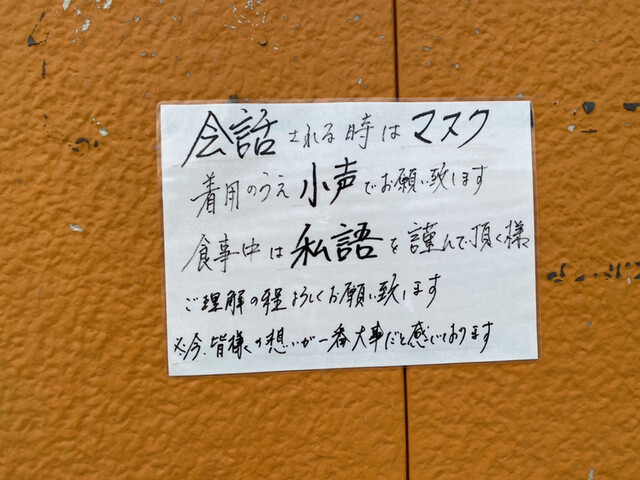 会話される時はマスク
着用のうえ小声でお願い致します
食事中は私語を謹んで頂く様
ご理解の程よろしくお願い致します
※今、皆様の想いが一番大事だと感じております